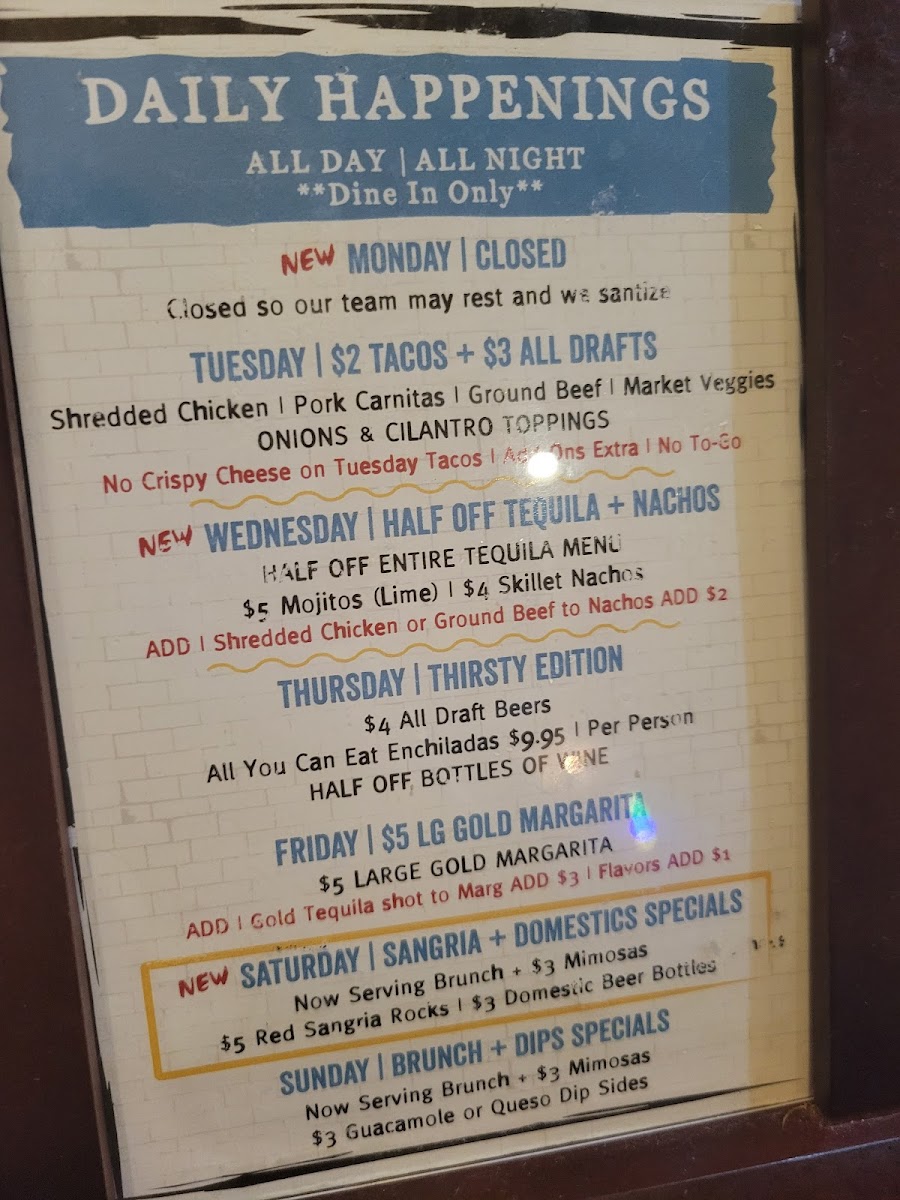 DAILY HAPPENINGS
ALL DAY | ALL NIGHT
**Dine In Only**
NEW MONDAY | CLOSED
Closed so our team may rest and we santize
TUESDAY | $2 TACOS + $3 ALL DRAFTS
Shredded Chicken | Pork Carnitas | Ground Beef | Market Veggies
ONIONS & CILANTRO TOPPINGS
No Crispy Cheese on Tuesday Tacos | Add Ons Extra | No To-Go
NEW WEDNESDAY | HALF OFF TEQUILA + NACHOS
HALF OFF ENTIRE TEQUILA MENU
$5 Mojitos (Lime) | $4 Skillet Nachos
ADD | Shredded Chicken or Ground Beef to Nachos ADD $2
THURSDAY | THIRSTY EDITION
$4 All Draft Beers
All You Can Eat Enchiladas $9.95 | Per Person
HALF OFF BOTTLES OF WINE
FRIDAY | $5 LG GOLD MARGARITA
$5 LARGE GOLD MARGARITA
ADD | Gold Tequila shot to Marg ADD $3 | Flavors ADD $1
NEW SATURDAY | SANGRIA + DOMESTICS SPECIALS
Now Serving Brunch + $3 Mimosas
$5 Red Sangria Rocks | $3 Domestic Beer Bottles
SUNDAY | BRUNCH + DIPS SPECIALS
Now Serving Brunch + $3 Mimosas
$3 Guacamole or Queso Dip Sides